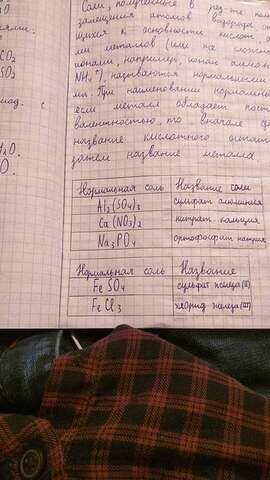 CO₂
SO₃
Соли, получаемые в рез-те
замещения атомов водорода
щихся к основности кислот
ми металлов (или
ионами, например, ионом
NH₄⁺), называются нормальными
ми. При наименовании
если металл обладает
валентностью, то вначале
название кислотного
затем название металла
Нормальная соль Название соли
Al₂(SO₄)₃ сульфат алюминия
Ca(NO₃)₂ нитрат кальция
Na₃PO₄ ортофосфат натрия
Нормальная соль Название
FeSO₄ сульфат железа (II)
FeCl₃ хлорид железа (III)